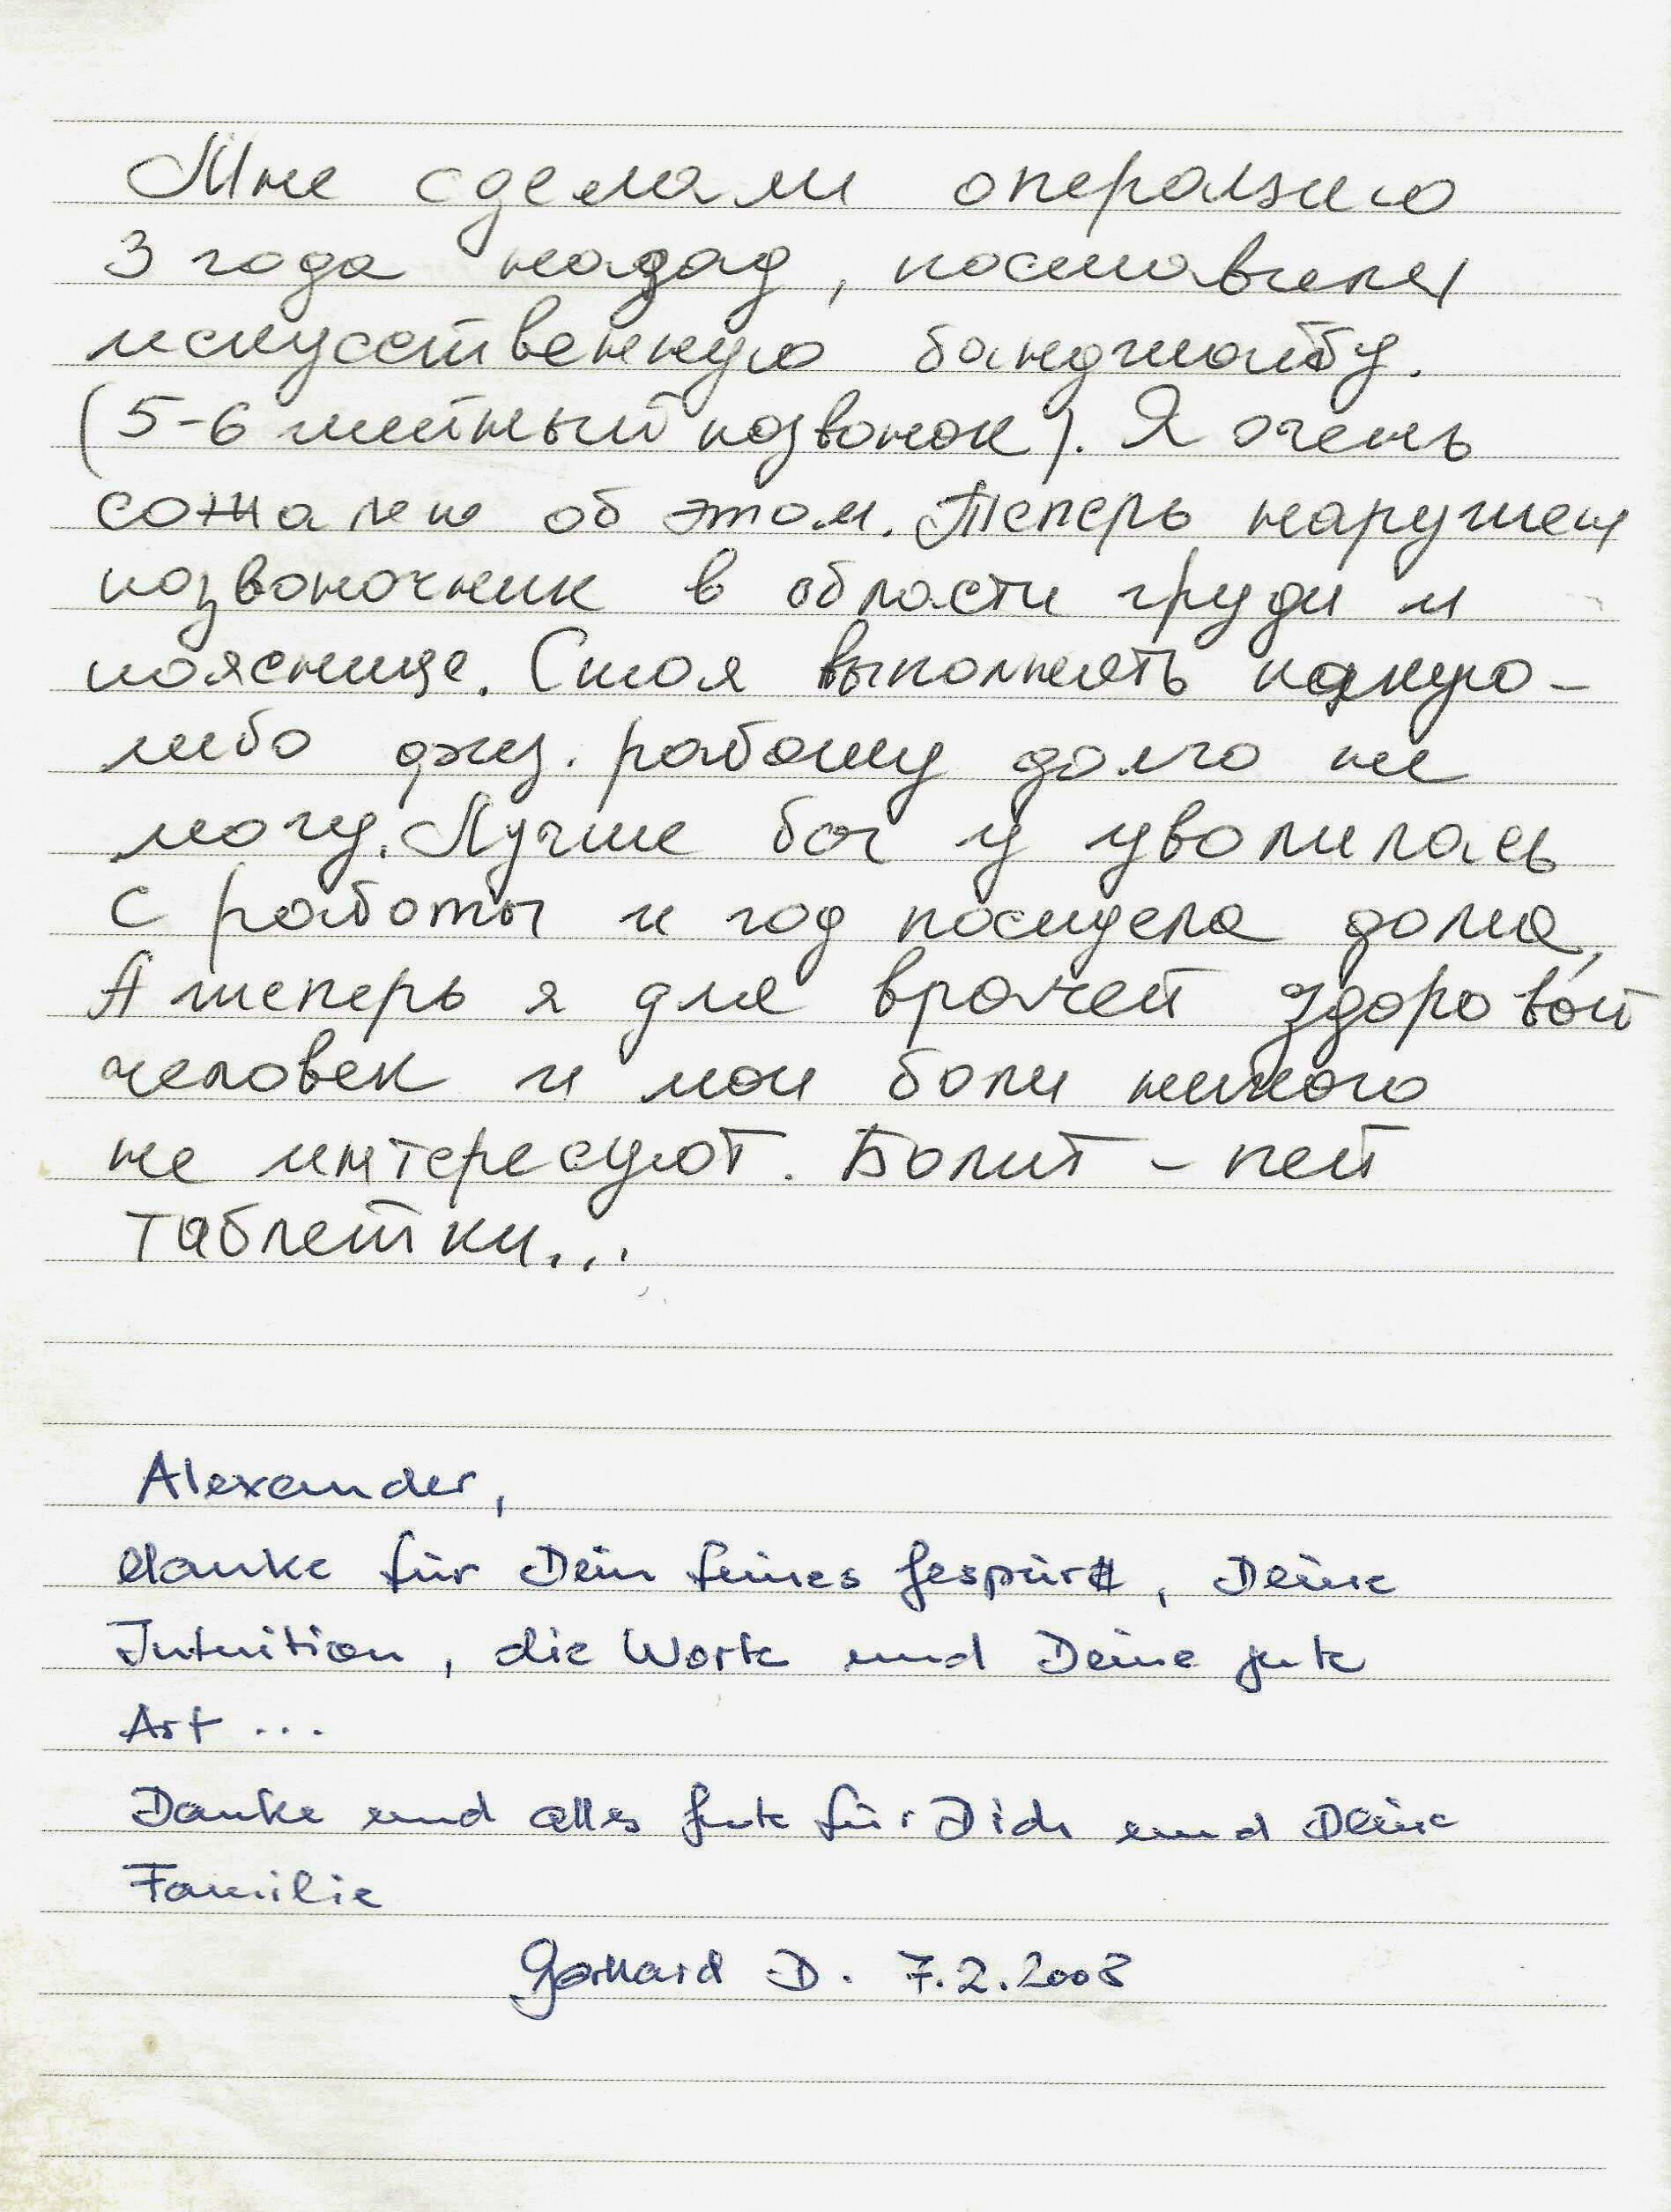 Мне сделали операцию
3 года назад, поставили
искусственную бандшайбу.
(5-6 шейный позвонок). Я очень
сожалею об этом. Теперь нарушен
позвоночник в области груди и
пояснице. Стоя выполнять какую-
либо физ. работу долго не
могу. Лучше бы я уволилась
с работы и год посидела дома,
А теперь я для врачей здоровой
человек и мои боли никого
не интересуют. Болит - пей
таблетки...
Alexander,
danke für Dein feines Gespür, Deine
Intuition, die Worte und Deine gute
Art ...
Danke und alles Gute für Dich und Deine
Familie
Gerhard D. 7.2.2008